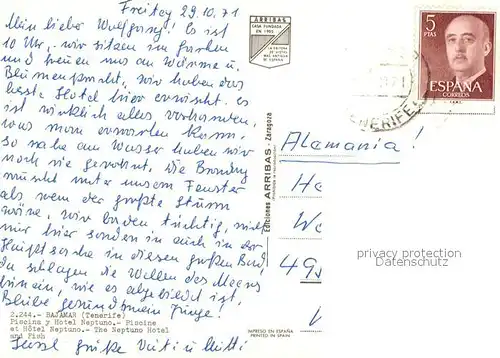 Freitag 29.10.71
Mein lieber Wolfgang! Es ist
10 Uhr, wir sitzen im Garten
und freuen uns an Wärme u.
Blumenpracht, wir haben das
beste Hotel hier erwischt. es
ist wirklich alles vorhanden,
was man erwarten kann.
so nahe am Wasser haben wir
noch nie gewohnt. die Brandung
rauscht unter unsem Fenster
als wenn der größte Sturm
wäre, wir baden tüchtig, nicht
nur hier sonden in auch in der
Hauptsache in diesem großen Bad,
da schlagen die Wellen des Meeres
hinein, wie es abgebildet ist.
Bleibe gesund mein Junge!
2.244.- BAJAMAR (Tenerife)
Piscina y Hotel Neptuno.- Piscine
et Hôtel Neptuno.- The Neptuno Hotel
and Fish
Herzl grüße Vati u Mutti
ARRIBAS
CASA FUNDADA
EN 1905
LA EDITORA
DE VISTAS
MAS ANTIGUA
DE ESPAÑA
Ediciones ARRIBAS - Zaragoza
IMPRESO EN ESPAÑA
PRINTED IN SPAIN
5
PTAS
ESPAÑA
CORREOS
TENERIFE
Alemania!
He
We
495
privacy protection
Datenschutz